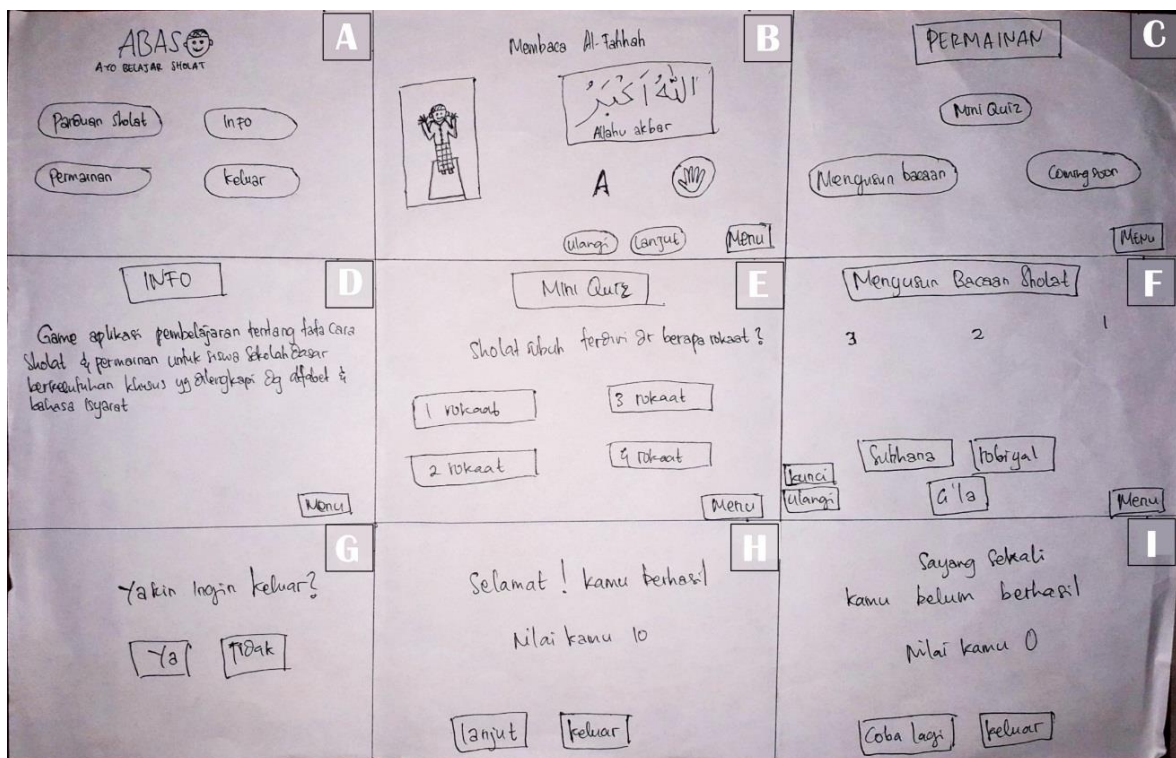 A
ABAS
AYO BELAJAR SHOLAT
Panduan Sholat
Info
Permainan
Keluar
B
Membaca Al-Fatihah
اللهُ أَكْبَرُ
Allahu akbar
A
ulangi
Lanjut
Menu
C
PERMAINAN
Mini Quiz
Mengusun bacaan
Coming Soon
MENU
D
INFO
Game aplikasi pembelajaran tentang tata cara
Sholat & permainan untuk siswa Sekolah Dasar
berkebutuhan khusus yg dilengkapi dg alfabet &
bahasa Isyarat
Menu
E
Mini Quiz
Sholat subuh terdiri dr berapa rokaat?
1 rokaat
3 rokaat
2 rokaat
4 rokaat
Menu
F
Mengusun Bacaan Sholat
3
2
1
Subhana
robiyal
a'la
kunci
ulangi
Menu
G
Yakin Ingin Keluar?
Ya
Tidak
H
Selamat! kamu berhasil
Nilai kamu 10
lanjut
keluar
I
Sayang Sekali
kamu belum berhasil
Nilai kamu 0
Coba lagi
keluar